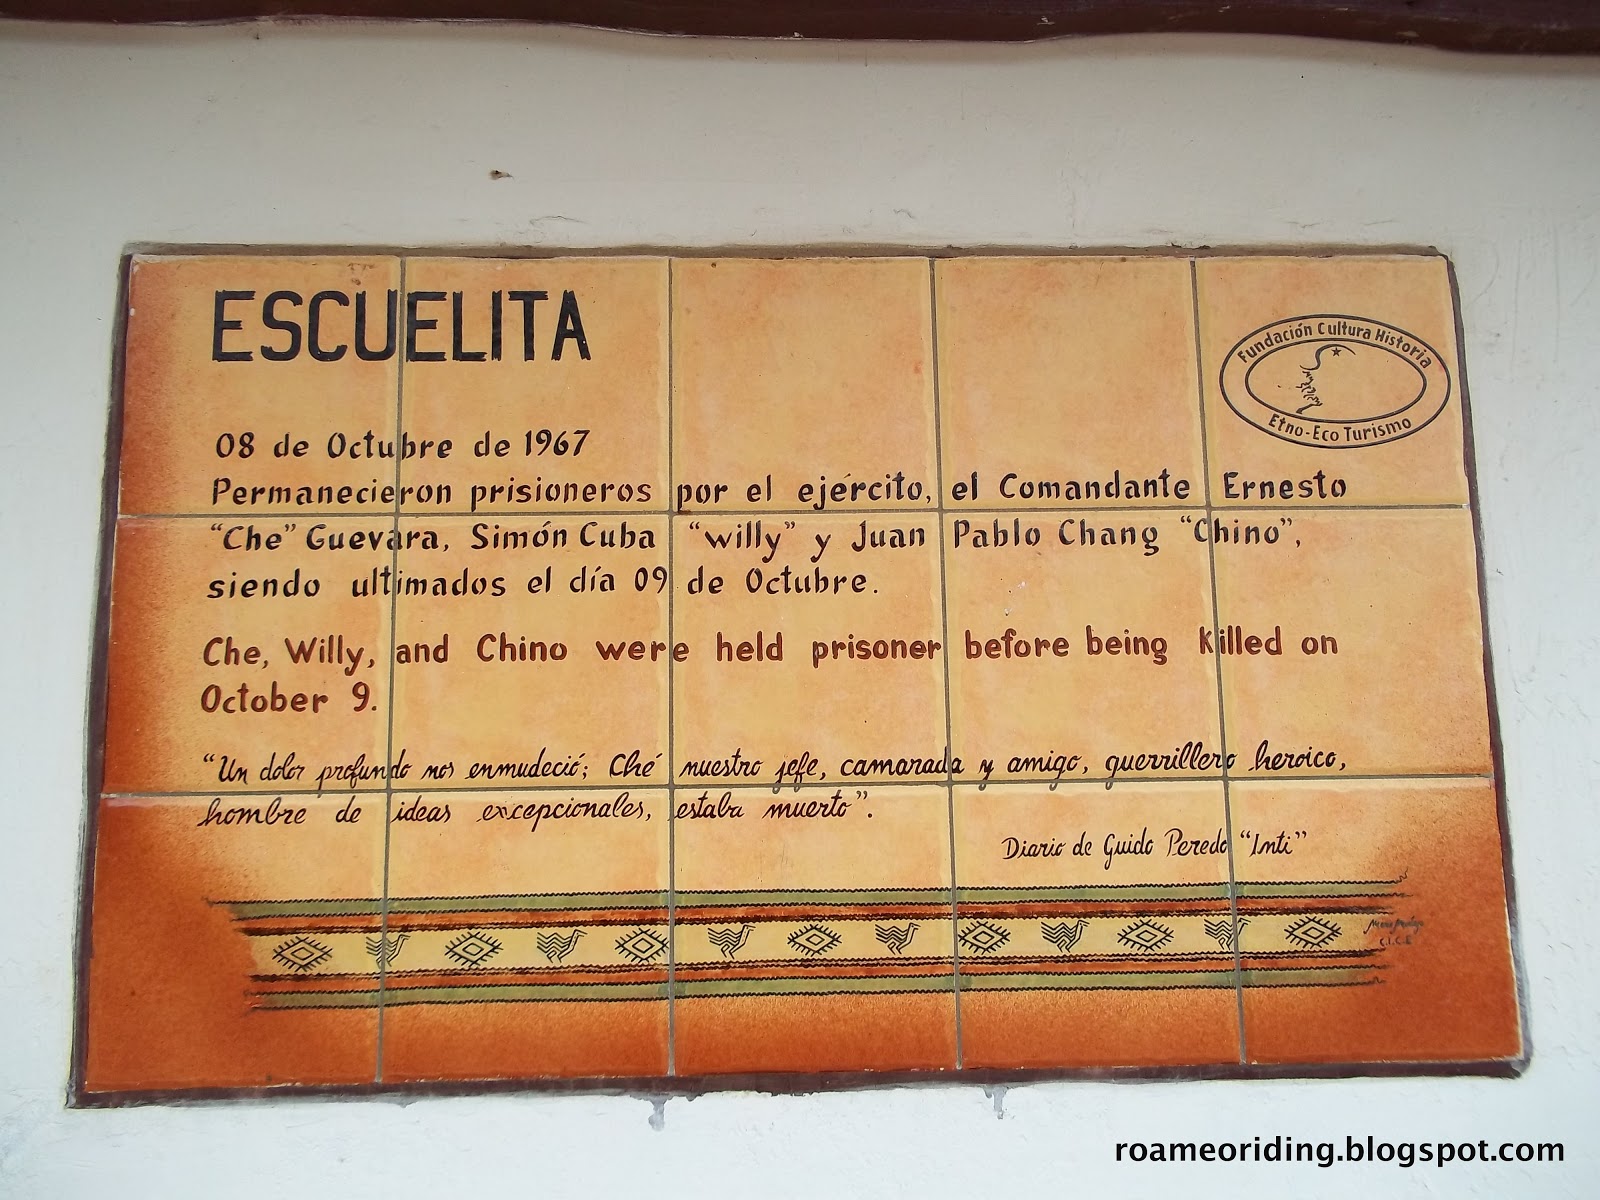 ESCUELITA
Fundación Cultura Historia
Etno-Eco Turismo
08 de Octubre de 1967
Permanecieron prisioneros por el ejército, el Comandante Ernesto
"Che" Guevara, Simón Cuba "willy" y Juan Pablo Chang "Chino",
siendo ultimados el día 09 de Octubre.
Che, Willy, and Chino were held prisoner before being killed on
October 9.
"Un dolor profundo nos enmudeció; Ché nuestro jefe, camarada y amigo, guerrillero heroico,
hombre de ideas excepcionales, estaba muerto".
Diario de Guido Peredo "Inti"
C.I.C.E
roameoriding.blogspot.com